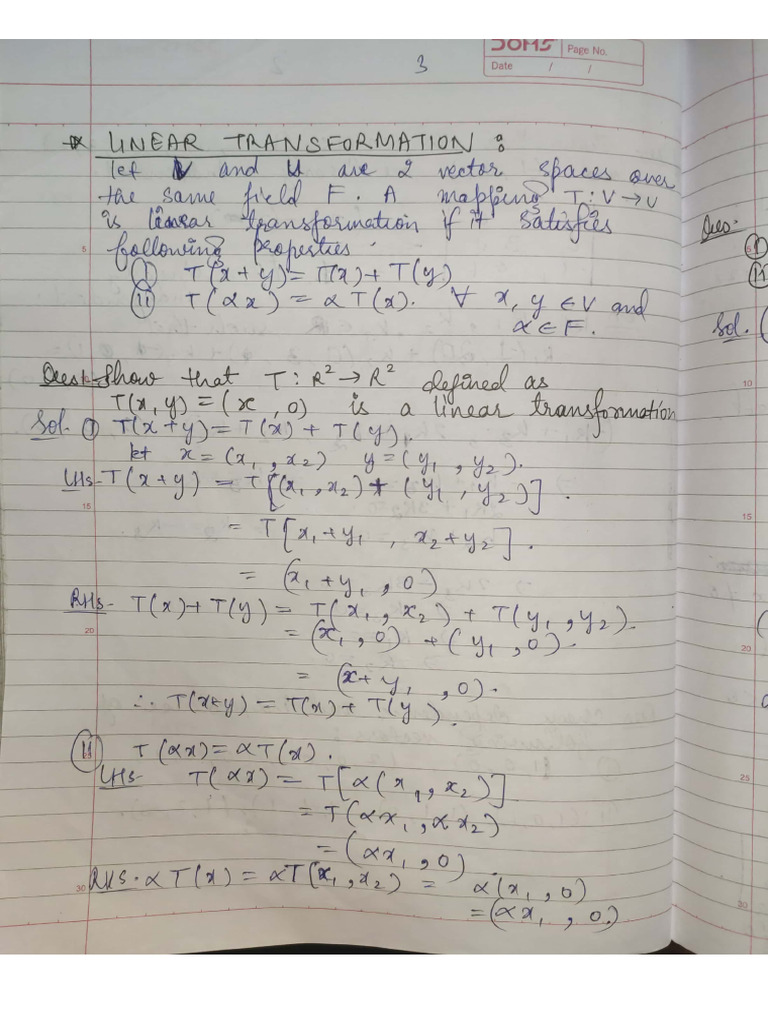 SOMS Page No.
Date / /
3
* LINEAR TRANSFORMATION :
let V and U are 2 vector spaces over
the same field F. A mapping T: V → U
is linear transformation if it satisfies
following properties.
(I) T(x+y) = T(x) + T(y)
(II) T(αx) = α T(x). ∀ x, y ∈ V and
α ∈ F.
Ques:- Show that T : R² → R² defined as
T(x, y) = (x , 0) is a linear transformation
Sol. (I) T(x+y) = T(x) + T(y).
let x = (x₁, x₂) y = (y₁, y₂).
LHS- T(x+y) = T[(x₁, x₂) + (y₁, y₂)].
= T[x₁+y₁ , x₂+y₂].
= (x₁+y₁, 0)
RHS- T(x)+T(y) = T(x₁, x₂) + T(y₁, y₂).
= (x₁, 0) + (y₁, 0).
= (x+y₁, 0).
∴ T(x+y) = T(x) + T(y).
(II) T(αx) = αT(x).
LHS- T(αx) = T[α(x₁, x₂)]
= T(αx₁, αx₂)
= (αx₁, 0).
RHS. αT(x) = αT(x₁, x₂) = α(x₁, 0)
= (αx₁ , 0.)
5
15
20
25
30
Ques:-
(I)
(II)
Sol.
10
15
20
25
30